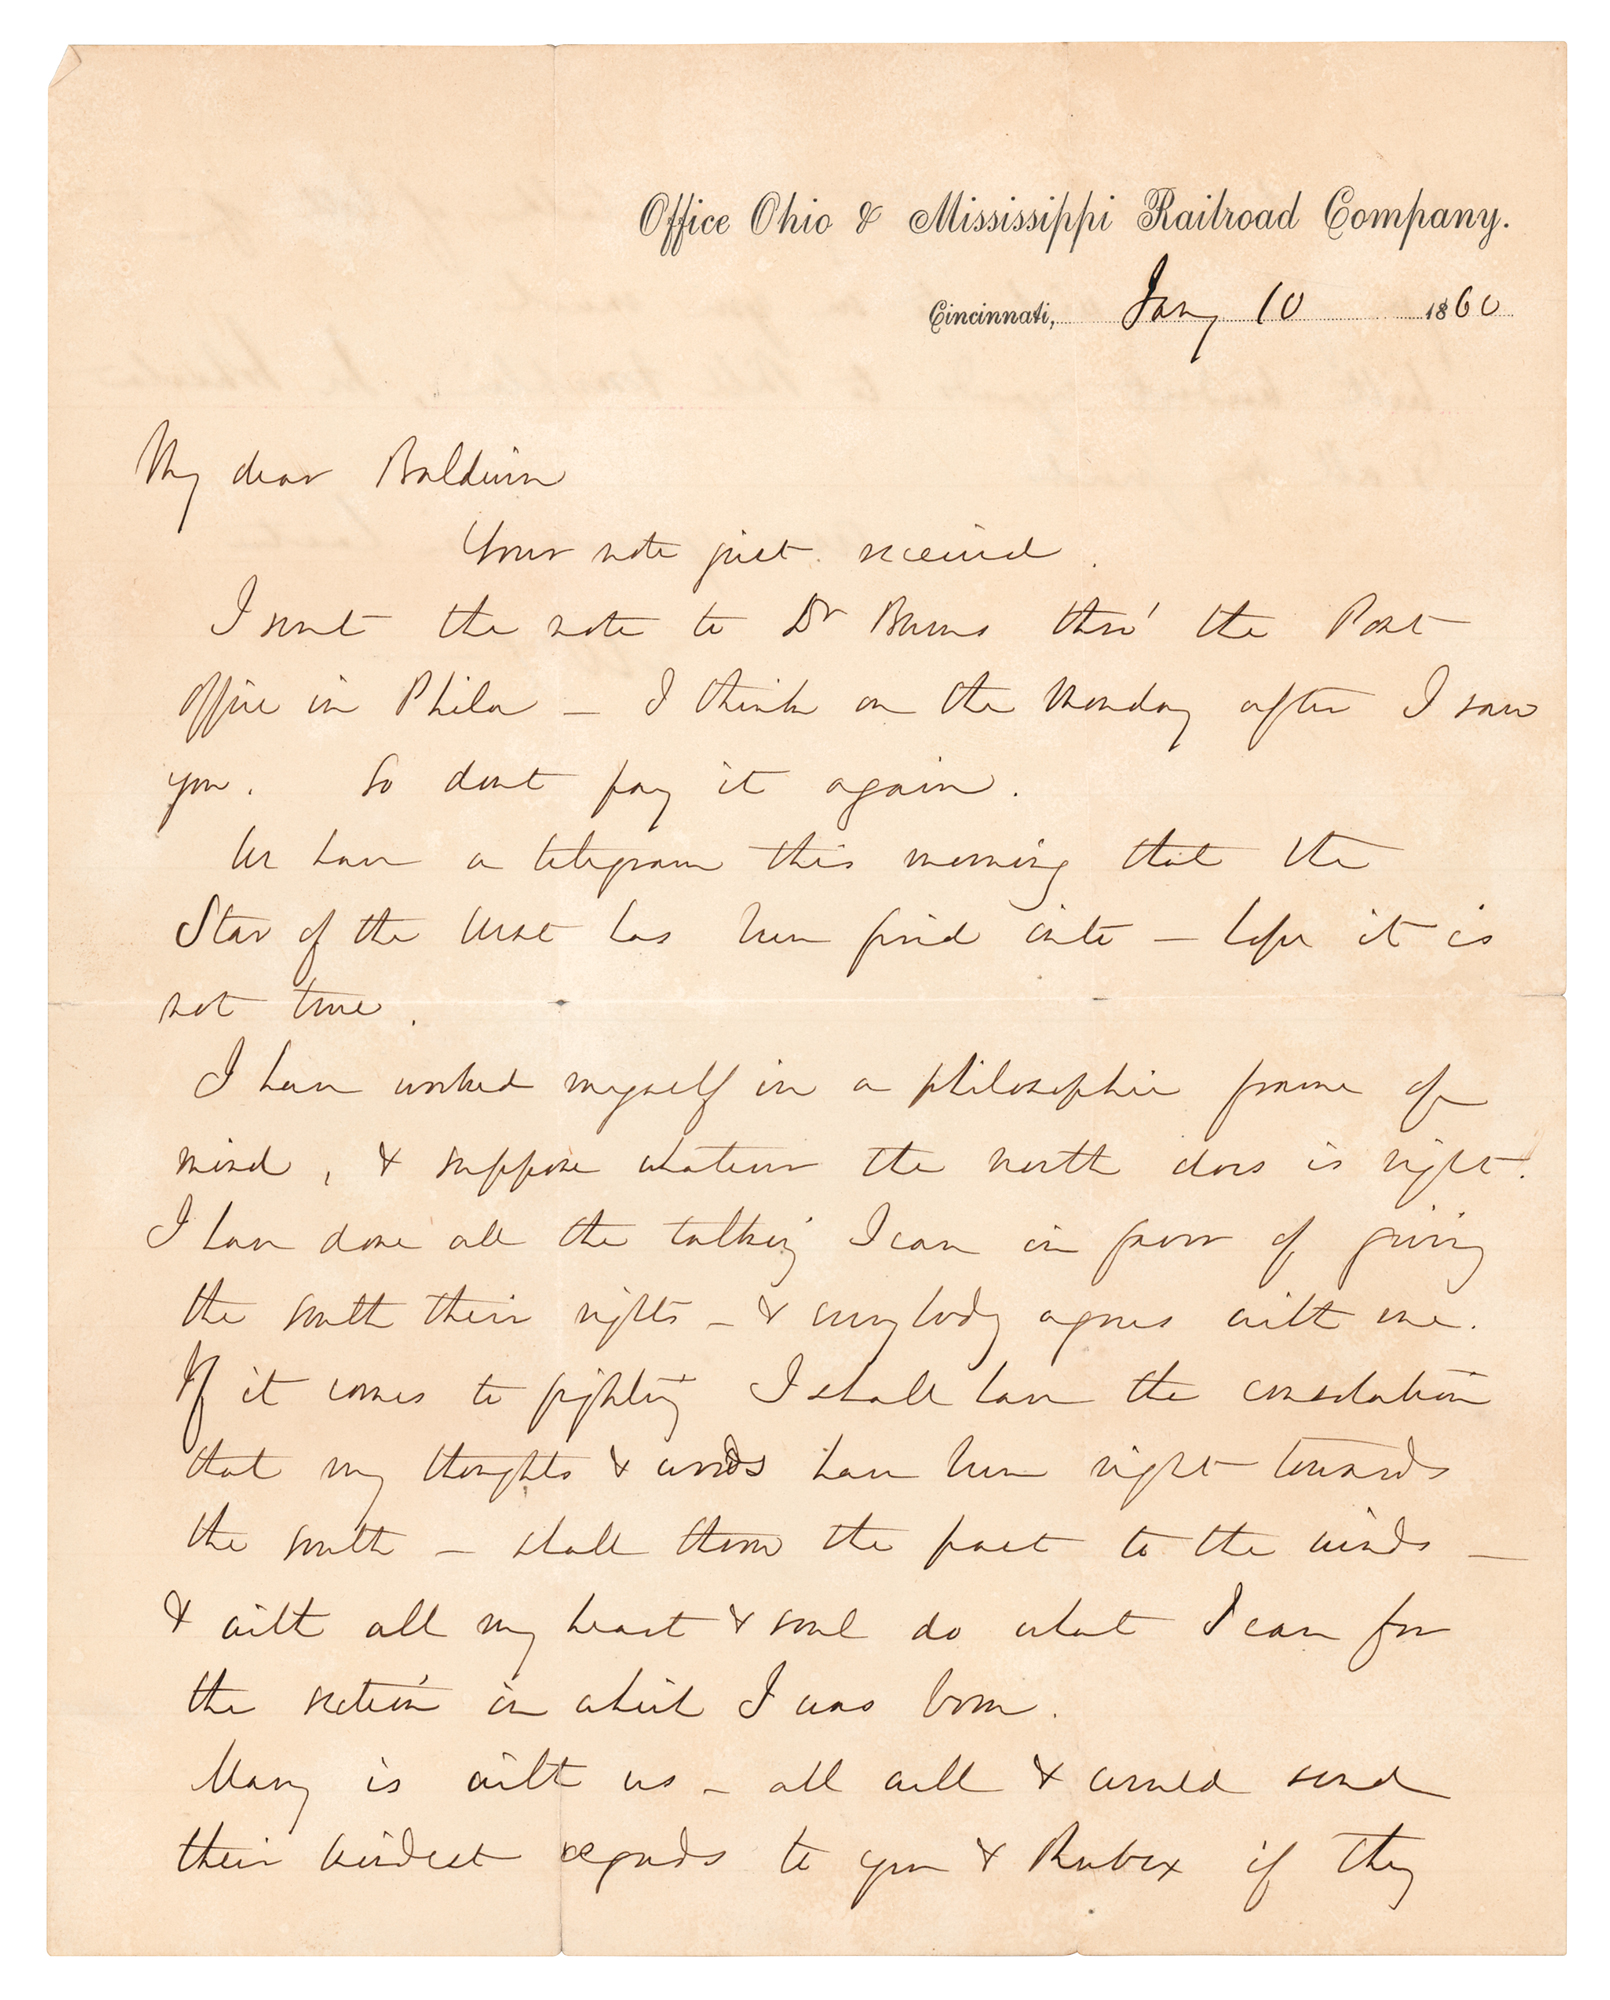 Office Ohio & Mississippi Railroad Company.
Cincinnati, Jany 10 1860
My dear Baldwin
Your note just received.
I sent the note to Dr Burns thro' the Post
Office in Phila — I think on the Monday after I saw
you. So dont pay it again.
We have a telegram this morning that the
Star of the West has been fired into — hope it is
not true.
I have worked myself in a philosophic frame of
mind, & suppose whatever the north does is right.
I have done all the talking I can in favor of giving
the south their rights — & everybody agrees with me.
If it comes to fighting I shall have the consolation
that my thoughts & words have been right towards
the south — shall throw the past to the winds —
& with all my heart & soul do what I can for
the section in which I was born.
Mary is with us — all well & would send
their kindest regards to you & if they